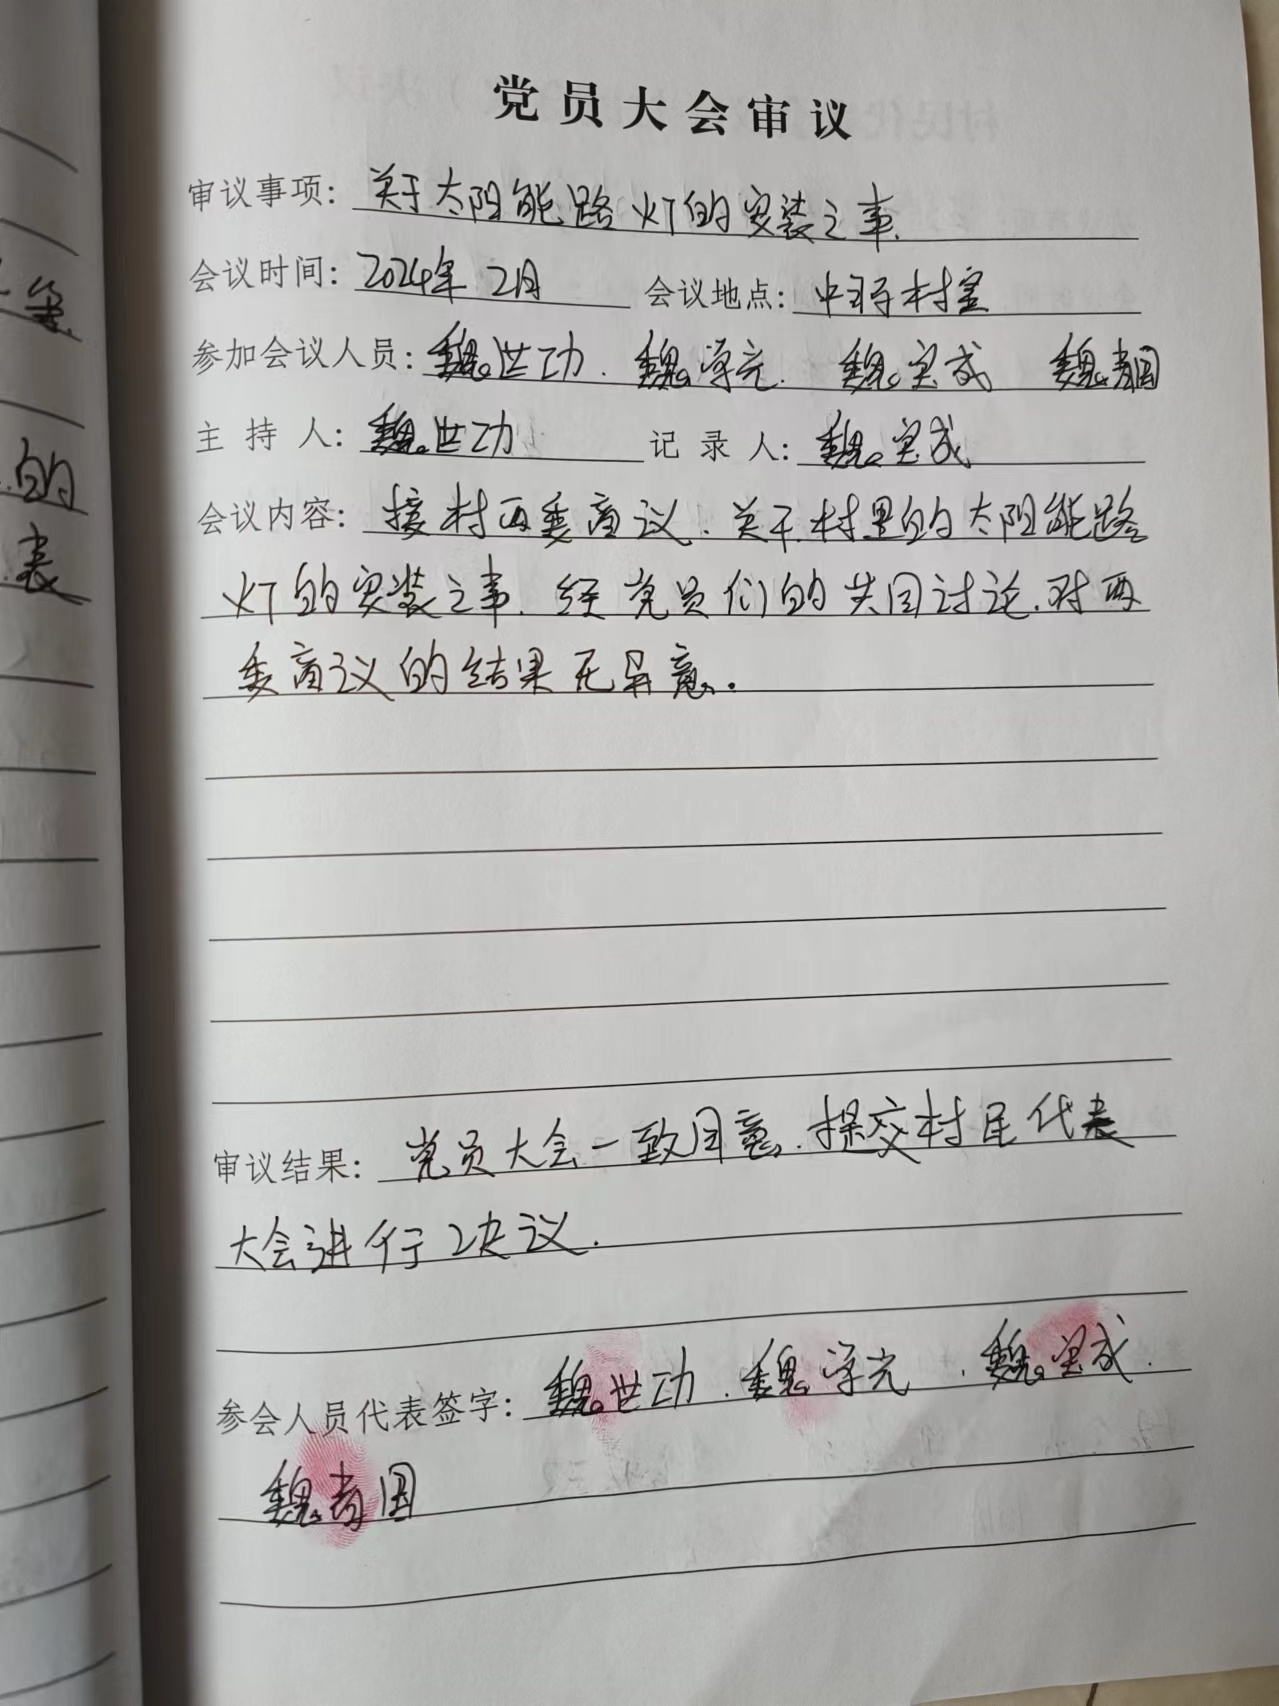 党员大会审议
审议事项: 关于太阳能路灯的安装之事.
会议时间: 2024年 2月 会议地点: 村室
参加会议人员: 魏世功. 魏学亮. 魏宝成 魏国
主 持 人: 魏世功 记 录 人: 魏宝成
会议内容: 接村两委商议. 关于村里的太阳能路
灯的安装之事. 经党员们的共同讨论. 对两
委商议的结果无异意.
审议结果: 党员大会一致同意. 提交村民代表
大会进行决议.
参会人员代表签字: 魏世功. 魏学亮. 魏宝成.
魏国
的
表